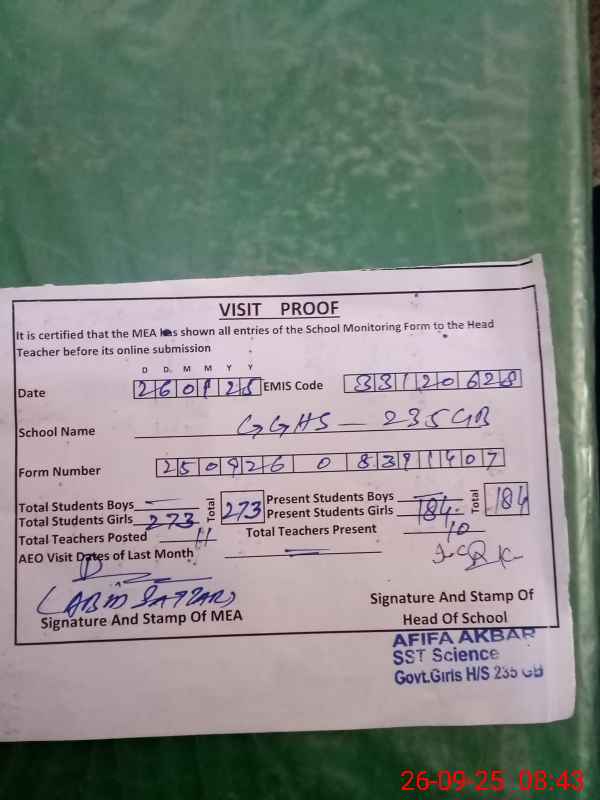 VISIT PROOF
It is certified that the MEA has shown all entries of the School Monitoring Form to the Head
Teacher before its online submission
D D M M Y Y
Date 260925 EMIS Code 33120628
School Name GGHS — 235 GB
Form Number 250926 0 8391407
Total Students Boys — Total 273 Present Students Boys — Total 184
Total Students Girls 273 Present Students Girls 184
Total Teachers Posted 11 Total Teachers Present 10
AEO Visit Dates of Last Month —
Signature And Stamp Of MEA
Signature And Stamp Of
Head Of School
AFIFA AKBAR
SST Science
Govt.Girls H/S 235 GB
26-09-25 08:43